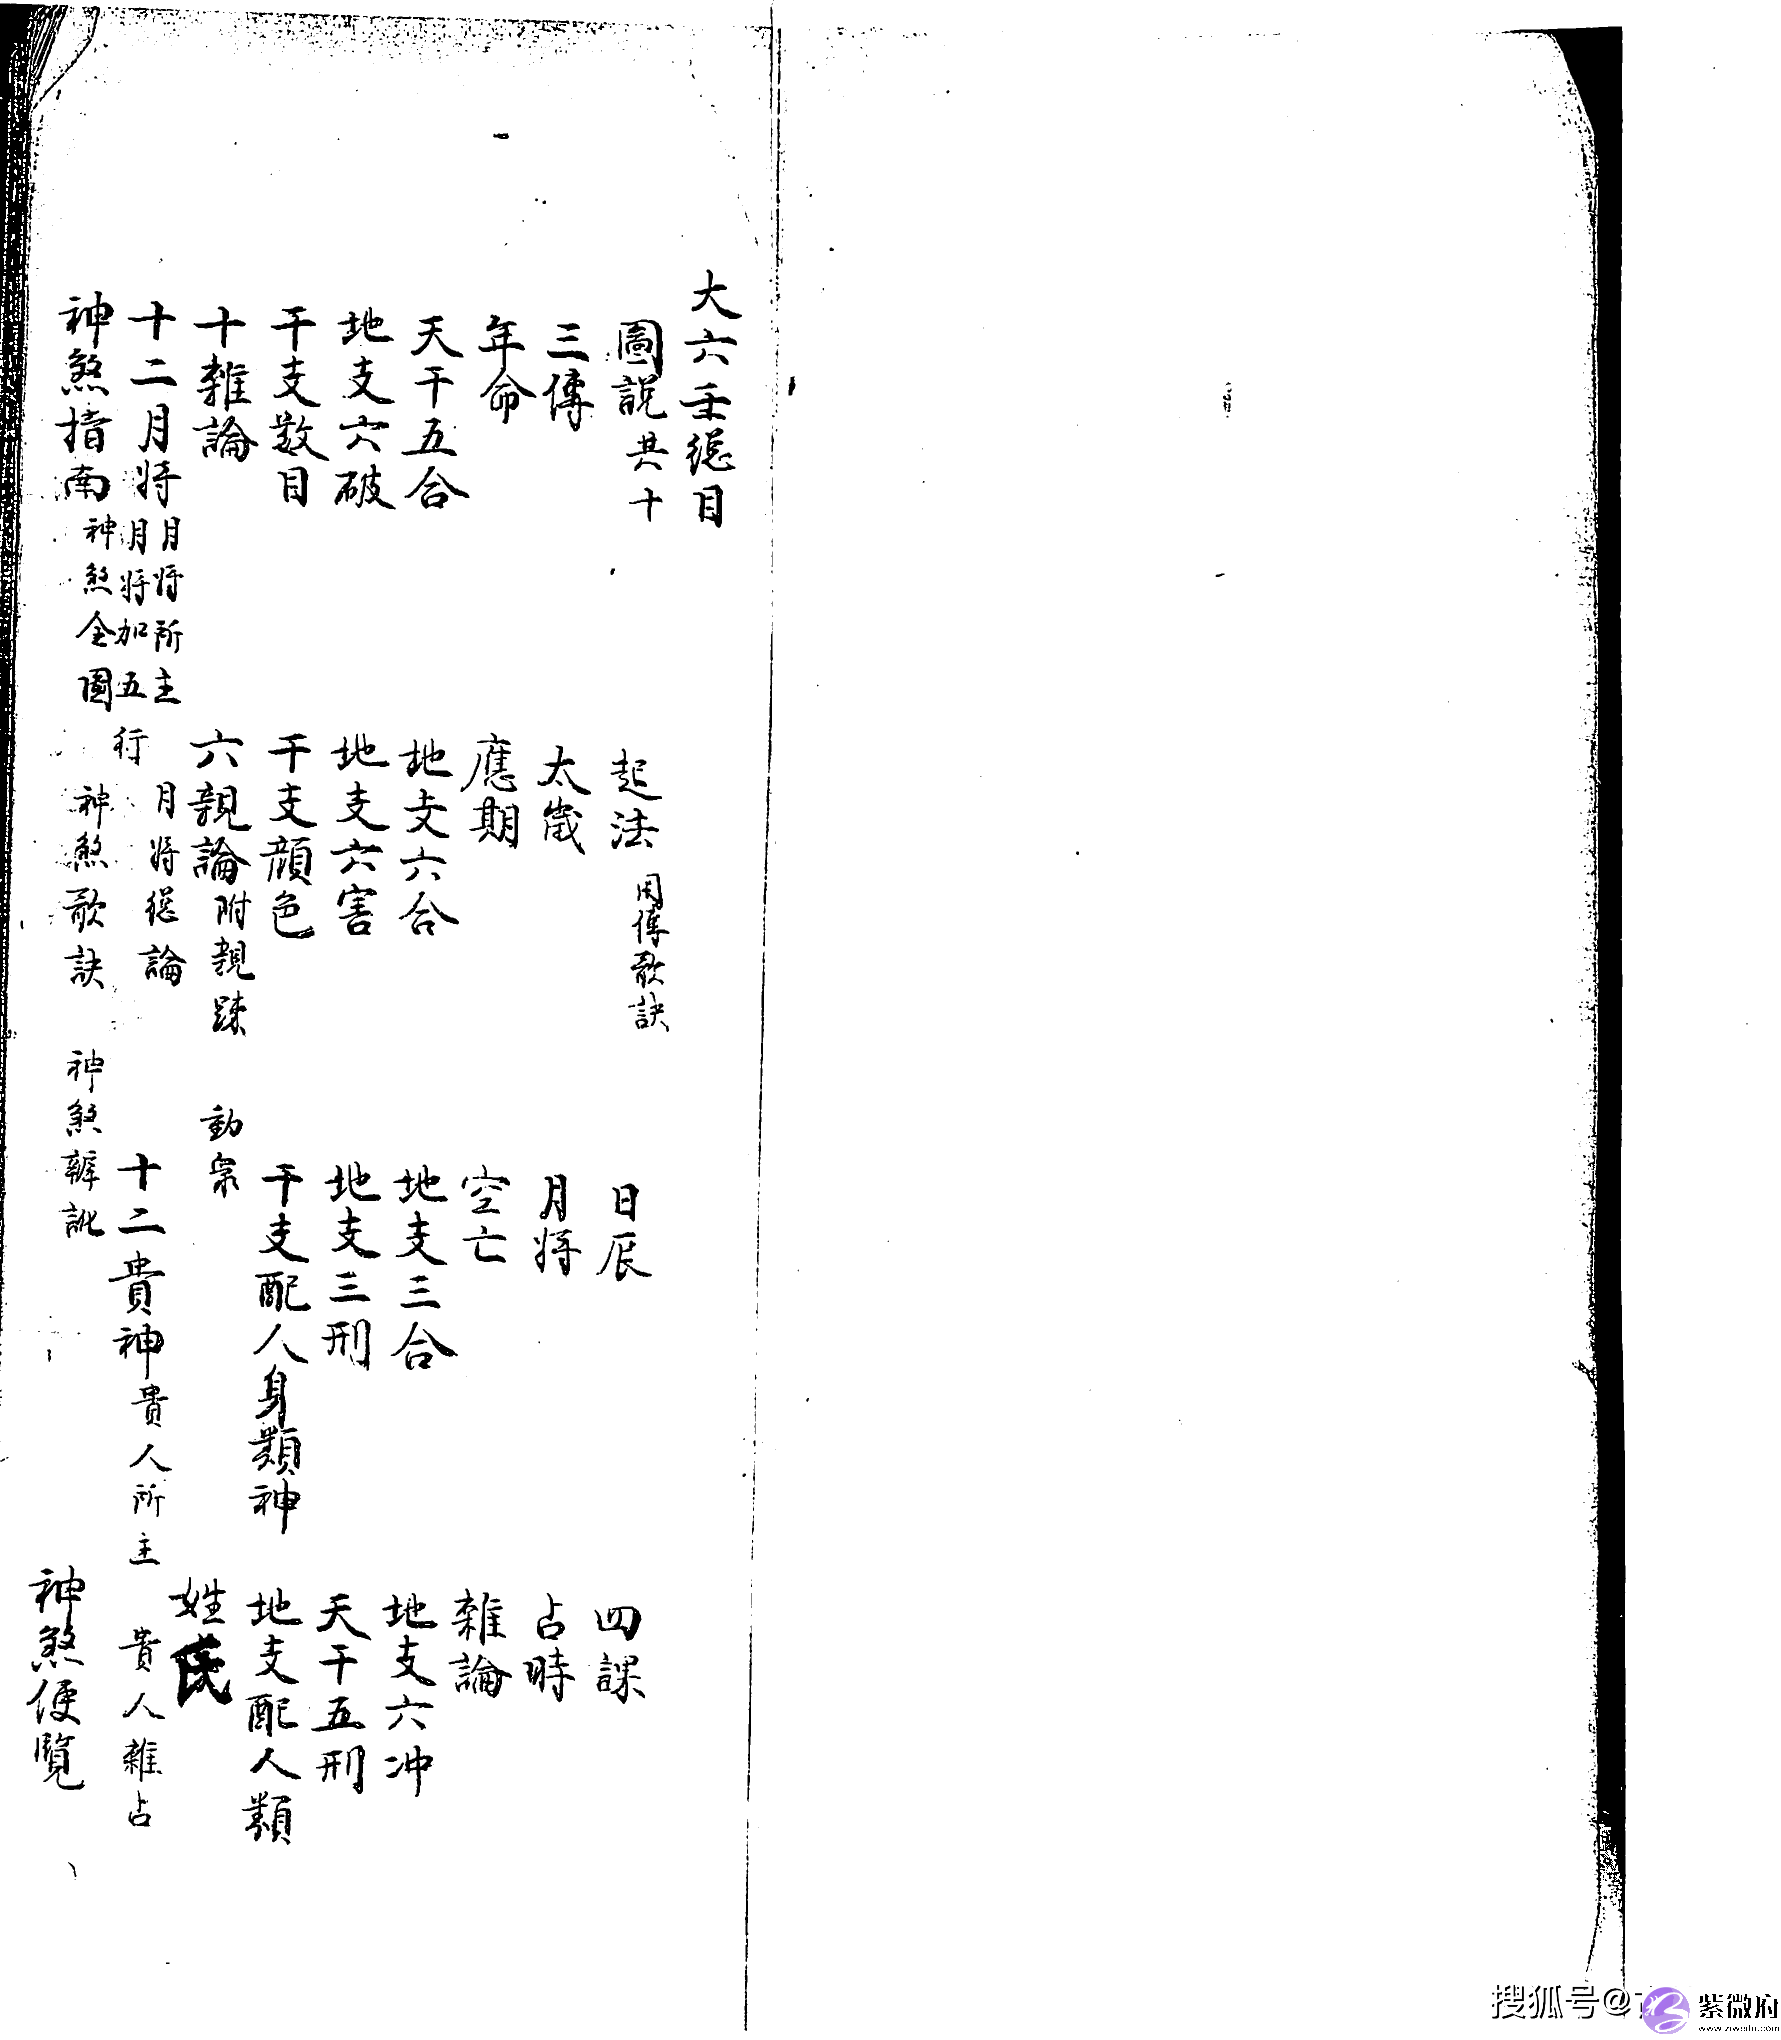 大六壬總目
圖說 共十 起法 用傳歌訣 日辰 四課
三傳 太歲 月將 占時
年命 應期 空亡 雜論
天干五合 地支六合 地支三合 地支六冲
地支六破 地支六害 地支三刑 天干五刑
干支數目 干支顏色 干支配人身類神 地支配人類
十雜論 六親論 附親踈 動 姓氏
十二月將 月將所主 月將加五行 月將總論 十二貴神 貴人所主 貴人雜占
神煞指南 神煞全圖 神煞歌訣 神煞辨訛 神煞便覧
搜狐号@
紫微府
www.ziweifu.com